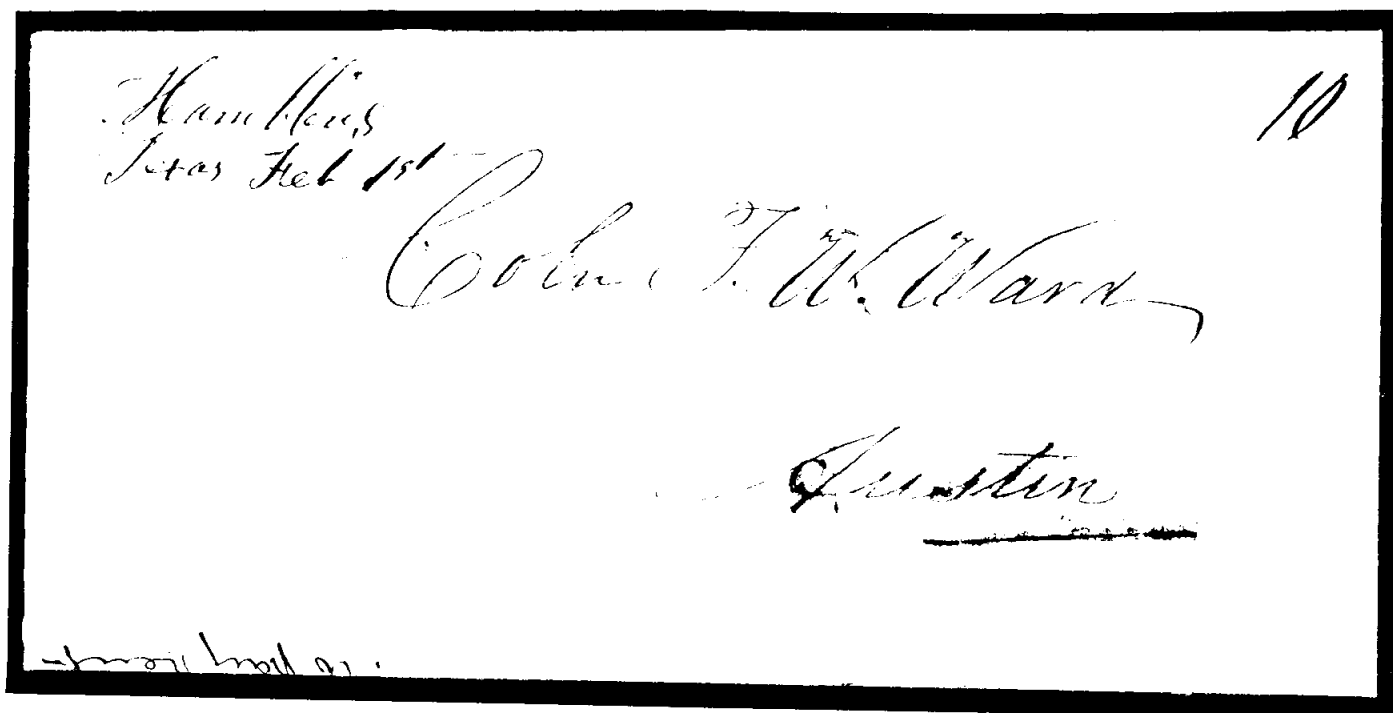 Hamblins
Texas Feb 1st
10
Coln F. W. Ward
Austin